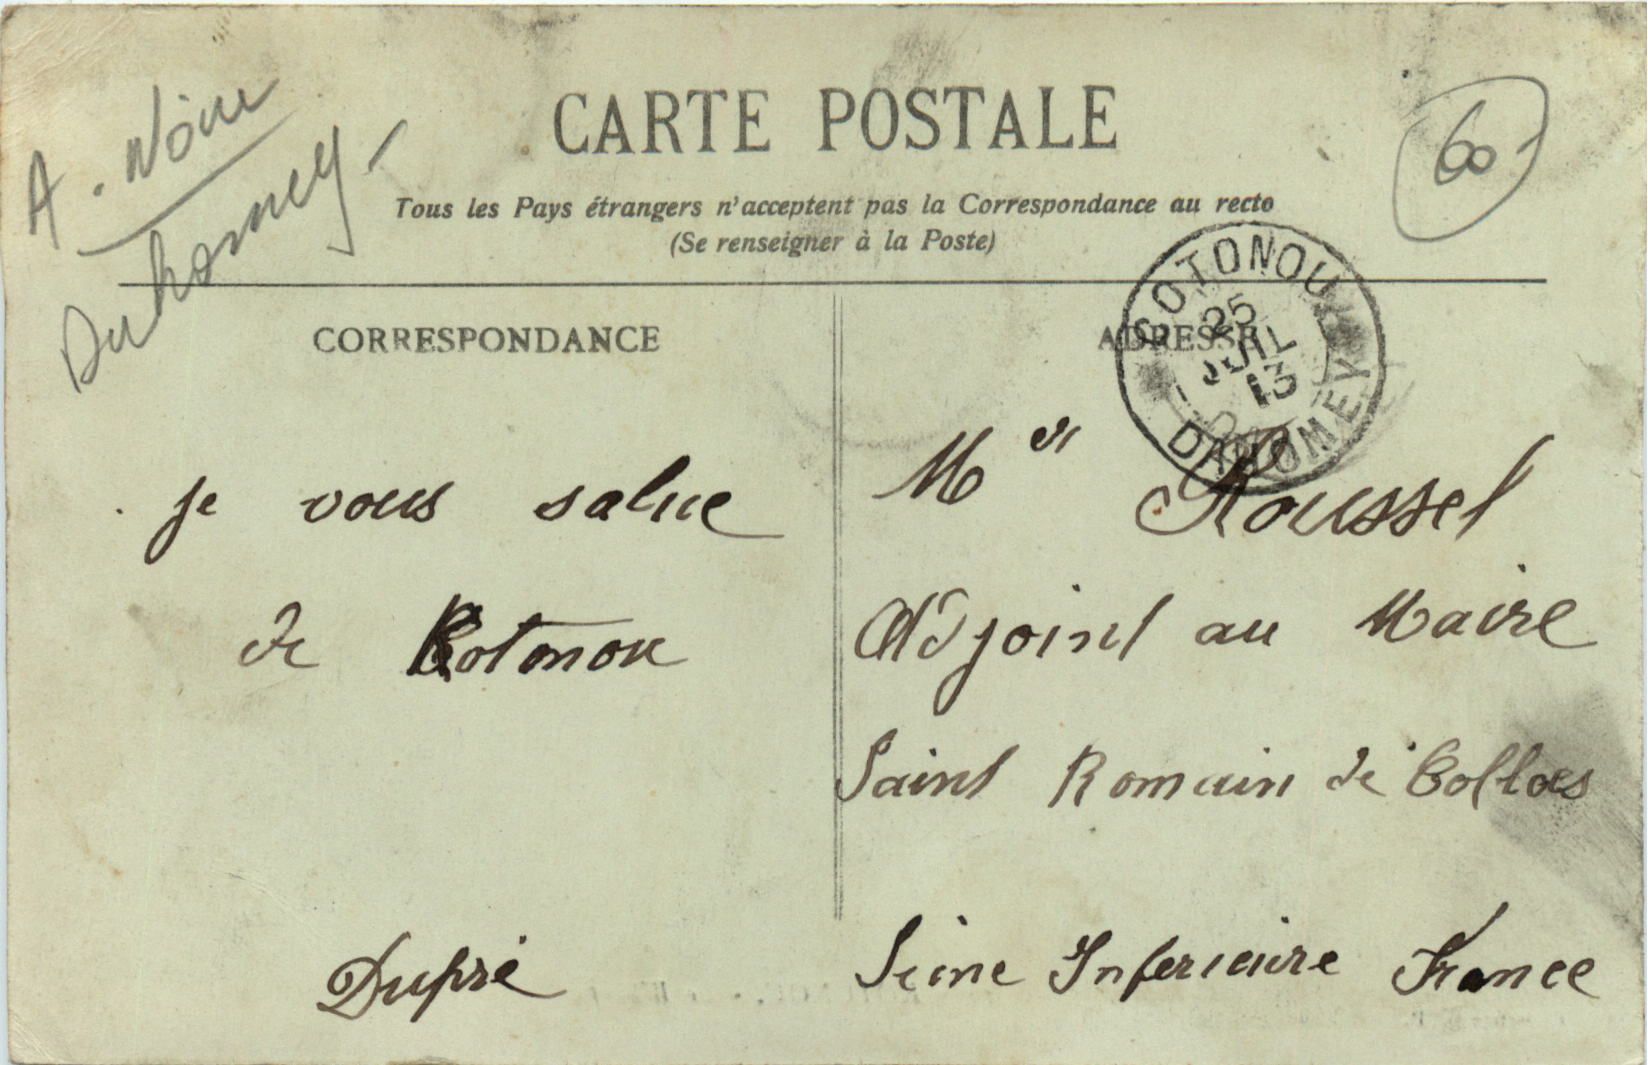 A. Noire
Dahomey -
CARTE POSTALE
60-
Tous les Pays étrangers n'acceptent pas la Correspondance au recto
(Se renseigner à la Poste)
COTONOU
25
JUIL
13
DAHOMEY
CORRESPONDANCE
ADRESSE
je vous salue
de Cotonou
Dupré
Mer Roussel
Adjoint au Maire
Saint Romain de Colbos
Seine Inferieure France